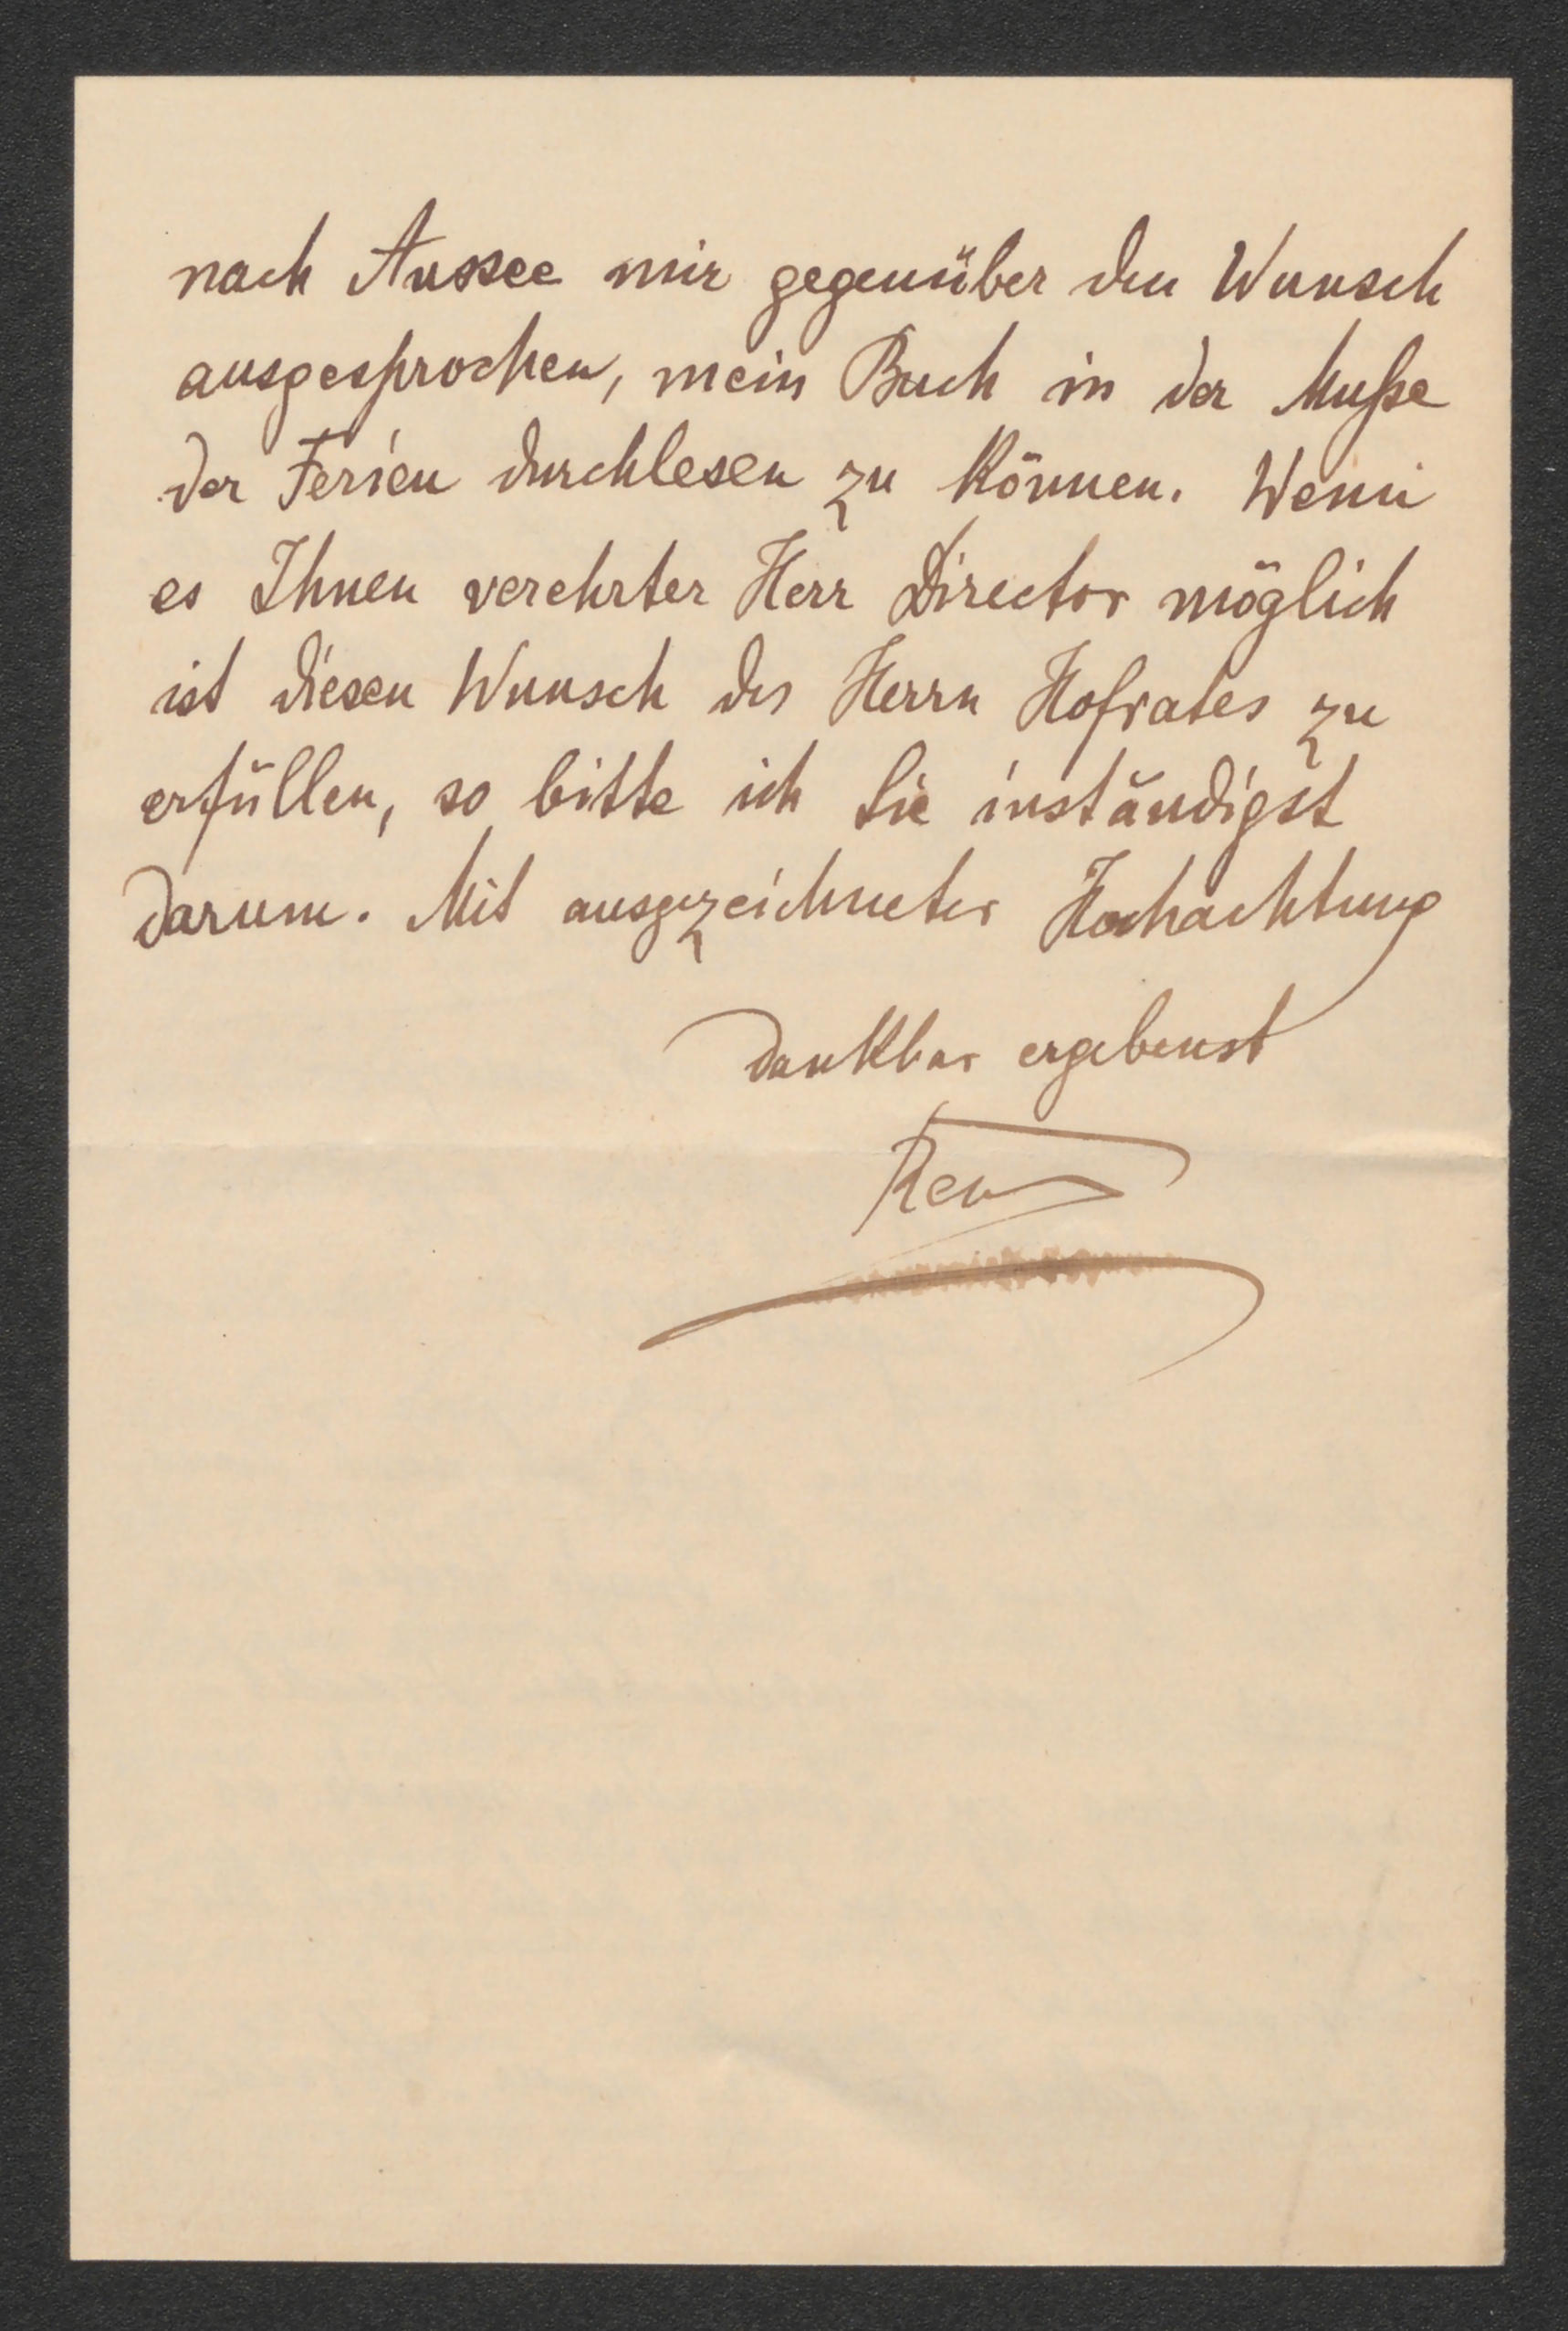 nach Aussee mir gegenüber den Wunsch
ausgesprochen, mein Buch in der Muße
der Ferien durchlesen zu können. Wenn
es Ihnen verehrter Herr Director möglich
ist diesen Wunsch des Herrn Hofrates zu
erfüllen, so bitte ich Sie inständigst
darum. Mit ausgezeichneter Hochachtung
dankbar ergebenst